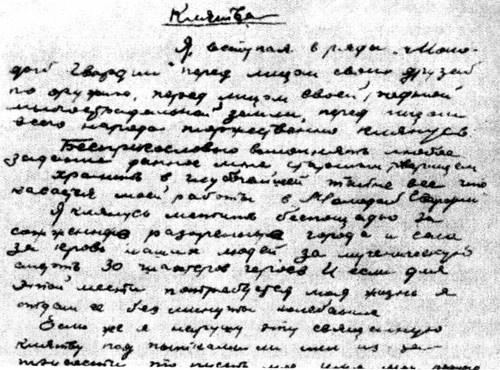 Клятва
Я, вступая в ряды „Моло-
дой Гвардии" перед лицом своих друзей
по оружию, перед лицом своей родной
многострадальной земли, перед лицом
всего народа торжественно клянусь
Беспрекословно выполнять любое
задание данное мне старшим товарищем
хранить в глубочайшей тайне все что
касается моей работы в Молодой Гвардии
Я клянусь мстить беспощадно за
сожженные разоренные города и села
за кровь наших людей за мученическую
смерть 30 шахтеров героев И если для
этой мести потребуется моя жизнь я
отдам ее без минуты колебания
Если же я нарушу эту священную
клятву под пытками ли или из-за
трусости то пусть мое имя мои родные